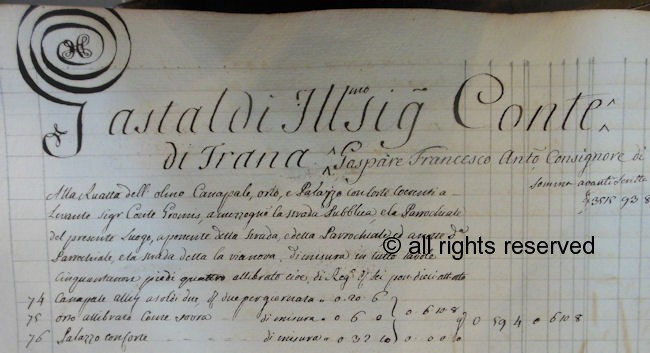 Gastaldi Ill.mo Sig.r Conte
di Trana Gaspare Francesco Ant.o Consignore di
Somma avanti scritta
Alla Ruatta dell'olmo Canapale, orto, e Palazzo con Corte Coerenti a
3515 93 8
Levante sig.r Conte Gromis, a mezzogno la strada Pubblica, e la Parrochiale
del presente Luogo, a ponente detta strada, e detta Parrochiale, ed a notte d.a
Parrochiale, e la strada detta la via nova, di misura in tutto tavole
Cinquantanove piedi quattro allibrato cioè, di Reg.o
© all rights reserved
74 Canapale due per giornata 0. 20 6
75 orto allibrato Come sovra di misura 0 6 0 0 6 10 8 0 59 4 0 6 10 8
76 Palazzo con Corte di misura 0 32 10 0 0 0